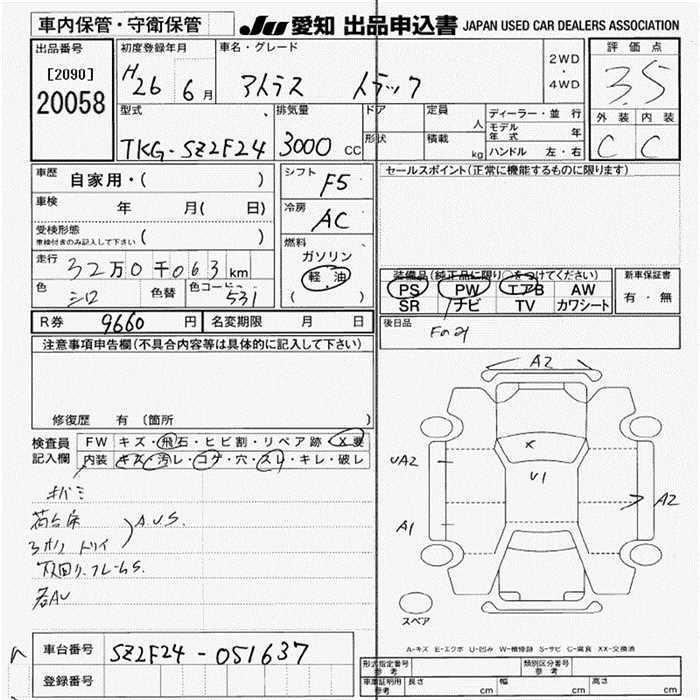 車内保管・守衛保管
JU 愛知 出品申込書 JAPAN USED CAR DEALERS ASSOCIATION
出品番号
[2090]
20058
初度登録年月
H26 6月
車名・グレード
アトラス トラック
2WD
・
4WD
評価点
3.5
外装 内装
C C
型式
TKG-SZ2F24
排気量
3000 CC
ドア
形状
定員
人
積載
kg
ディーラー・並行
モデル年式 年
ハンドル 左・右
車歴
自家用・( )
車検
年 月( 日)
受検形態
車検付きのみ記入して下さい ( )
走行
32万0千063km
色
シロ
色替
色コード
531
シフト
F5
冷房
AC
燃料
ガソリン
軽油
( )
セールスポイント(正常に機能するものに限ります)
装備品(純正品に限り○をつけてください)
PS PW エアB AW
SR ナビ TV カワシート
新車保証書
有・無
R券 9660円
名変期限 月 日
後日品
注意事項申告欄(不具合内容等は具体的に記入して下さい)
修復歴 有 〔箇所 〕
検査員
記入欄
FW キズ・飛石・ヒビ割・リペア跡・X要
内装 キズ・汚レ・コゲ・穴・スレ・キレ・破レ
キバミ
荷台床
A.U.S.
下回リ.フレームS.
各AU
A2
X
U1
UA2
A1
A2
スペア
A-キズ E-エクボ U-凹み W-補修跡 S-サビ C-腐食 XX-交換済
車台番号
SZ2F24-051637
登録番号
形式指定番号
参考
類別区分番号
参考
車庫証明用
参考
長さ cm
幅 cm
高さ cm